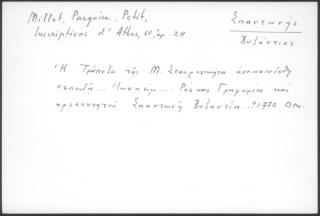 Millet, Pargoire, Petit,
Inscriptions d'Athos, σν, αρ. 211
Σπαντωνής
Βυζάντιος
"Ἡ Τράπεζα τῆς Μ. Σταυρονικήτα ἀνεκαινίσθη
σπουδῇ... Ἰωακείμ.... Ράκκας Γρηγορίου καὶ
προσκυνητοῦ Σπαντωνῆ Βυζαντίου.." 1770 Δεκ.